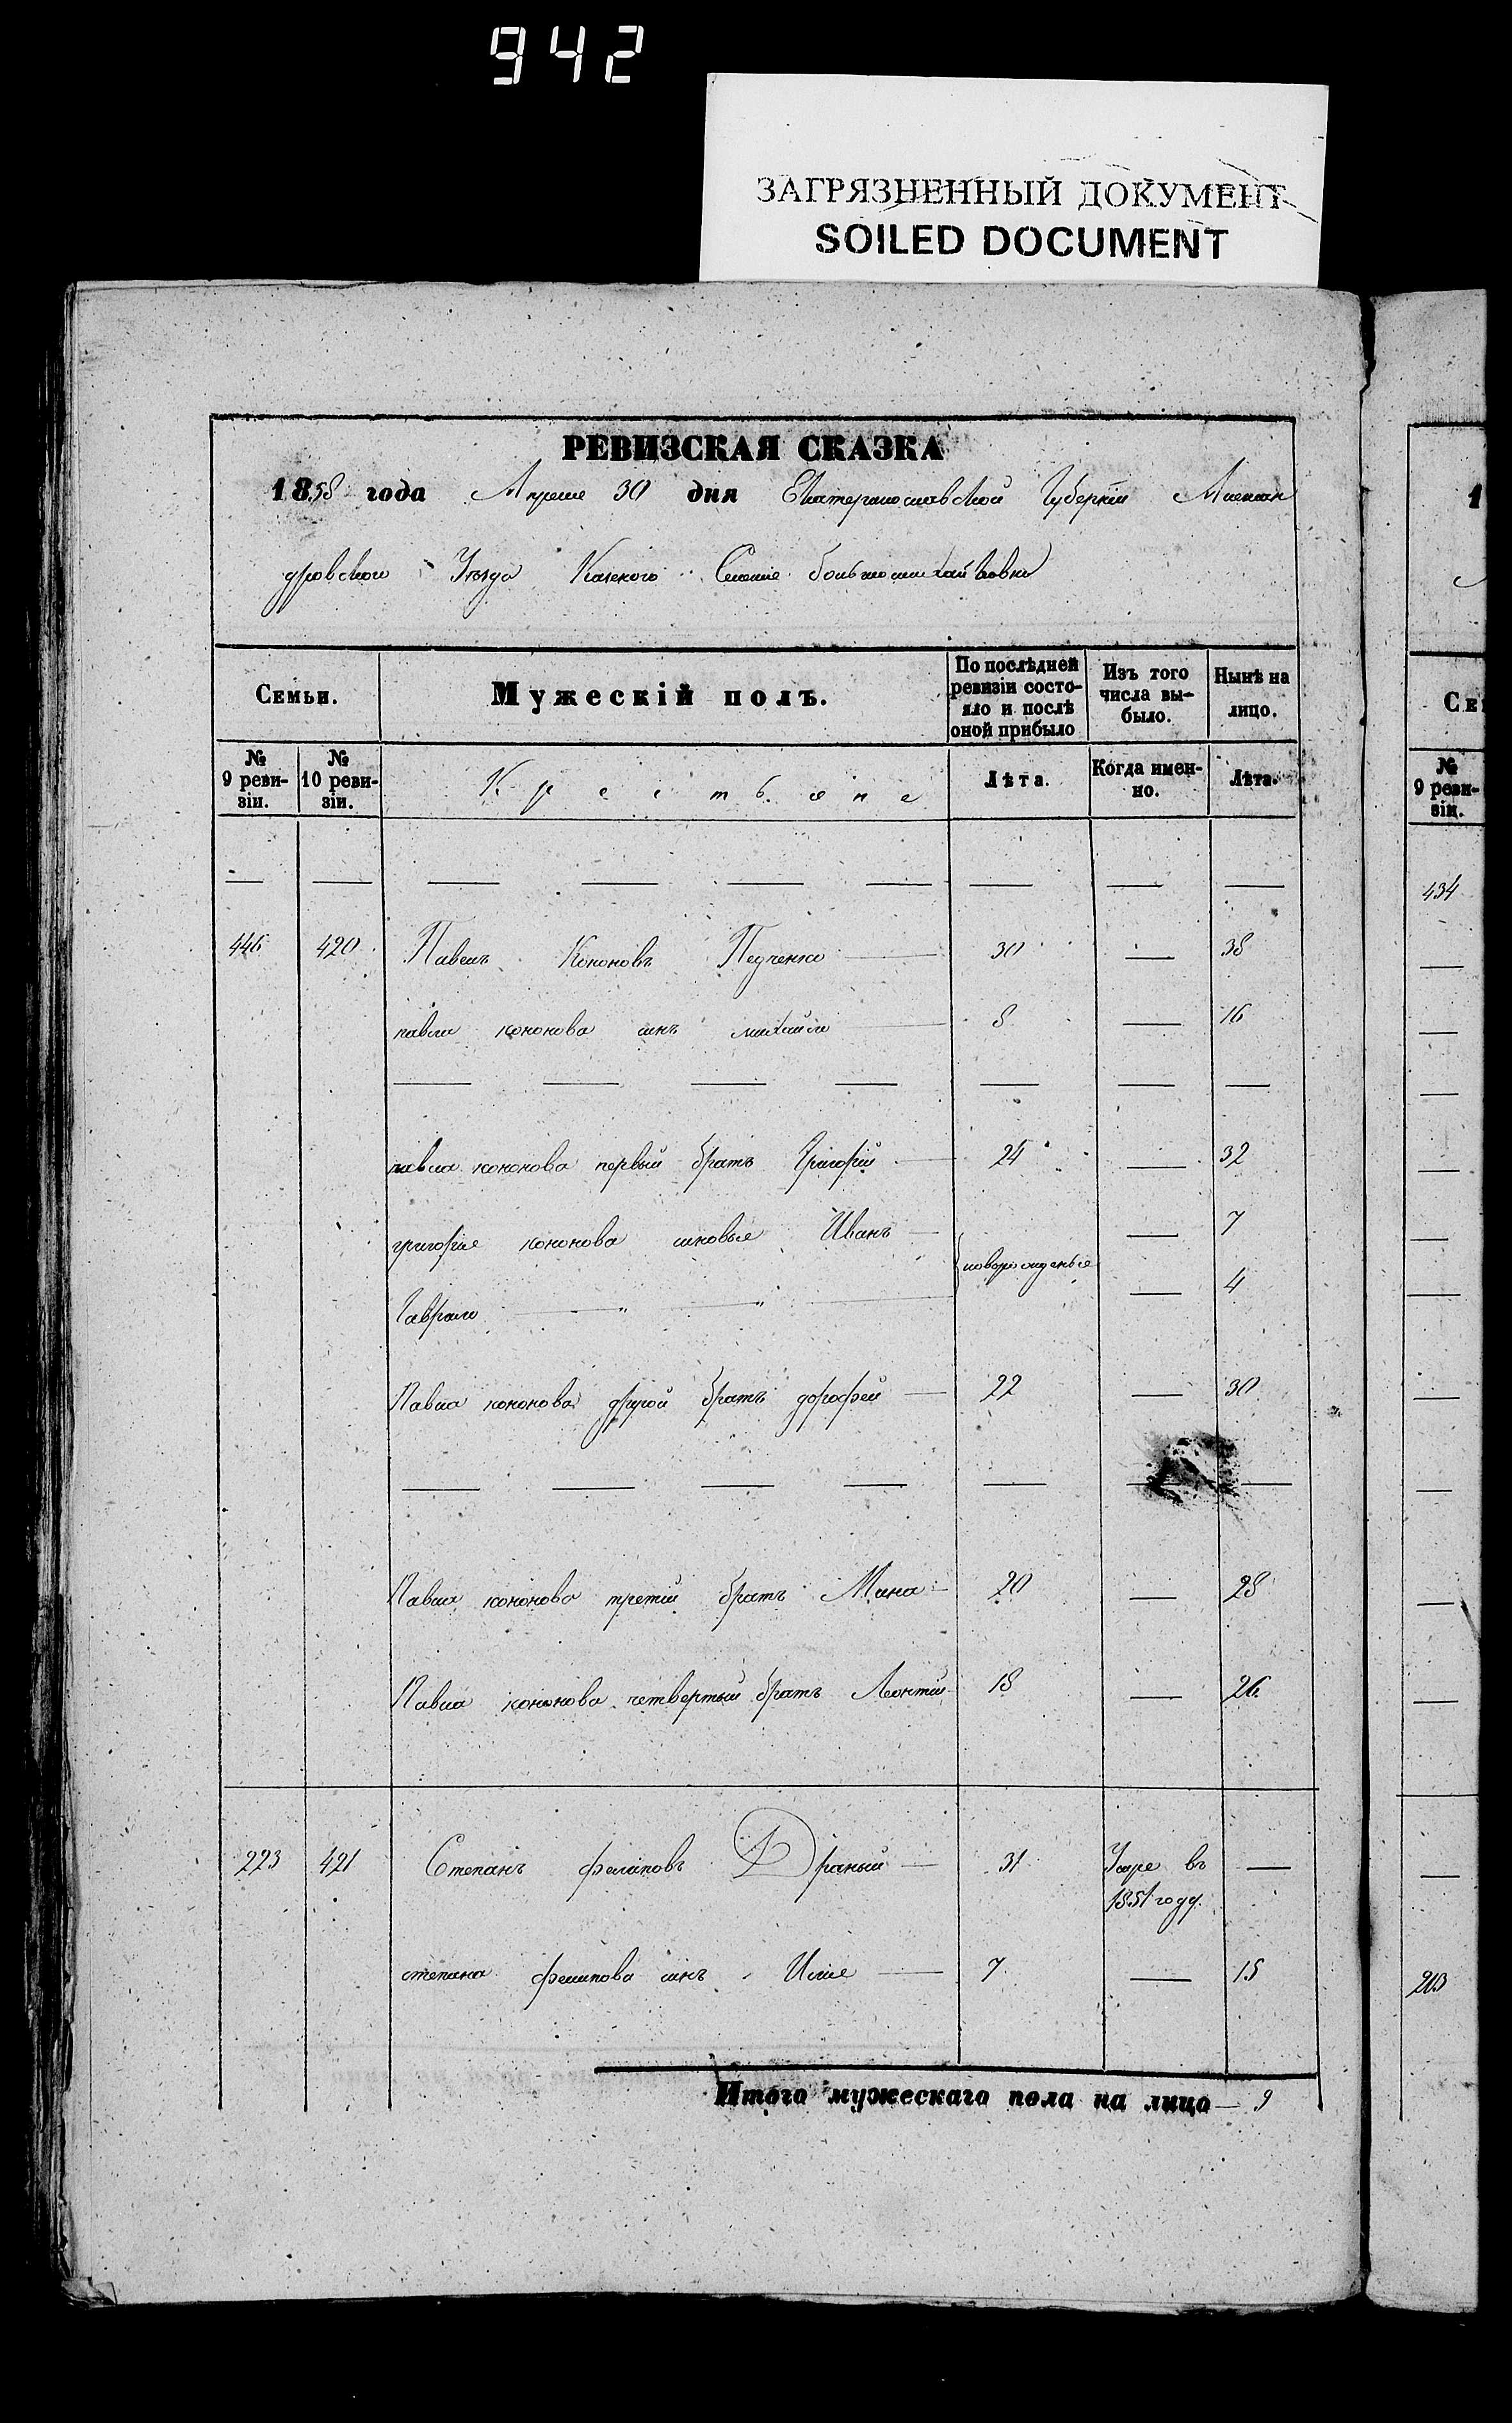 942
ЗАГРЯЗНЕННЫЙ ДОКУМЕНТ
SOILED DOCUMENT
РЕВИЗСКАЯ СКАЗКА
1858 года Апреля 30 дня Екатеринославской Губерніи Алексан
дровского Уезда Казеного Селения большомихайловки
Семьи.
Мужескій полъ.
По послѣдней ревизіи состо-
яло и послѣ
оной прибыло
Изъ того
числа вы-
было.
Нынѣ на
лицо.
№
9 реви-
зіи.
№
10 реви-
зіи.
Крестьяне
Лѣта.
Когда имен-
но.
Лѣта.
446 420 Павелъ Кононовъ Педченко 30 — 38
павла кононова синъ михайло 8 — 16
павла кононова первый братъ Григорій 24 — 32
григорие кононова синовье Иванъ — 7
новорожденые
Гаврило " " — 4
Павла кононова другой братъ дорофей 22 — 30
Павла кононова третий братъ Мина 20 — 28
Павла кононова четвертый братъ Леонтий 18 — 26
223 421 Степанъ фелиповъ Драный 31 Умре въ —
1851 году.
степана фелипова синъ Илие 7 — 15
Итого мужескаго пола на лицо — 9
1
Се
№
9 реви-
зіи.
434
203